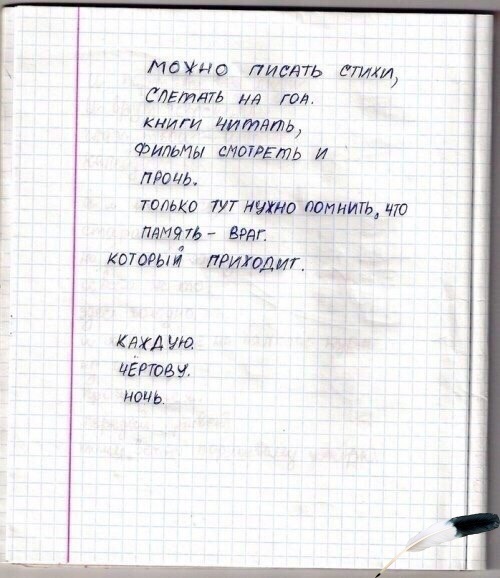 МОЖНО ПИСАТЬ СТИХИ,
СЛЕТАТЬ НА ГОА.
КНИГИ ЧИТАТЬ,
ФИЛЬМЫ СМОТРЕТЬ И
ПРОЧЬ.
ТОЛЬКО ТУТ НУЖНО ПОМНИТЬ, ЧТО
ПАМЯТЬ - ВРАГ.
КОТОРЫЙ ПРИХОДИТ.
КАЖДУЮ.
ЧЁРТОВУ.
НОЧЬ.